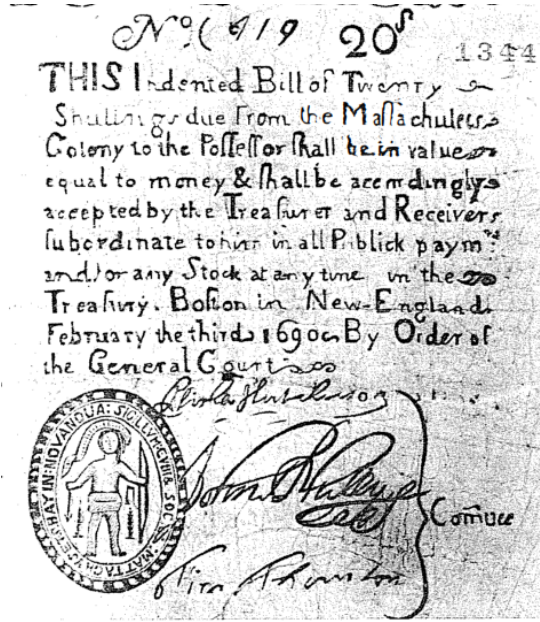 No ( 919 20S 1344
THIS Indented Bill of Twenty
Shillings due from the Massachusets
Colony to the Possessor shall be in value
equal to money & shall be accordingly
accepted by the Treasurer and Receivers
subordinate to him in all Publick paymts
and for any Stock at any time in the
Treasury. Boston in New-England.
February the third 1690 By Order of
the General Court
Elisha Hutchinson
John
Tim Thornton
Comtee
SIGILLVM GVB & SOC
IN NOV ANGLIA